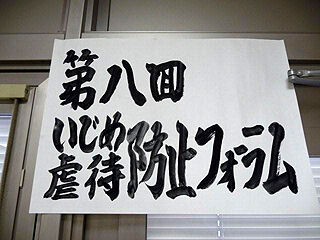 第八回
いじめ
虐待防止フォーラム